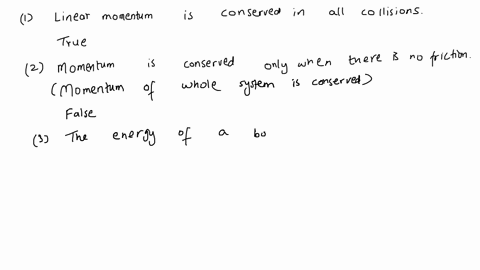 (1) Linear momentum is conserved in all collisions.
True
(2) Momentum is conserved only when there is no friction.
(Momentum of whole system is conserved)
False
(3) The energy of a bo